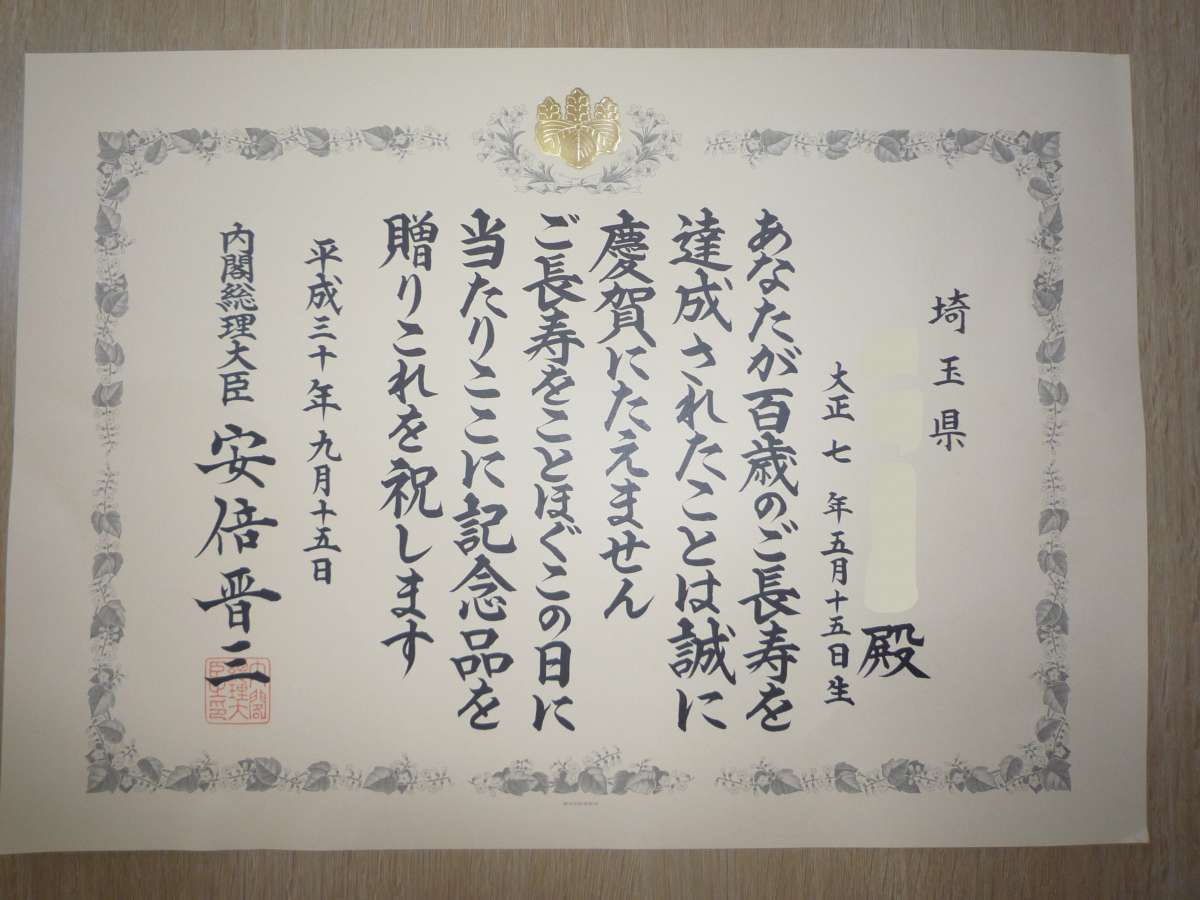 埼玉県
殿
大正七年五月十五日生
あなたが百歳のご長寿を
達成されたことは誠に
慶賀にたえません
ご長寿をことほぐこの日に
当たりここに記念品を
贈りこれを祝します
平成三十年九月十五日
内閣総理大臣 安倍晋三
内閣総理大臣印